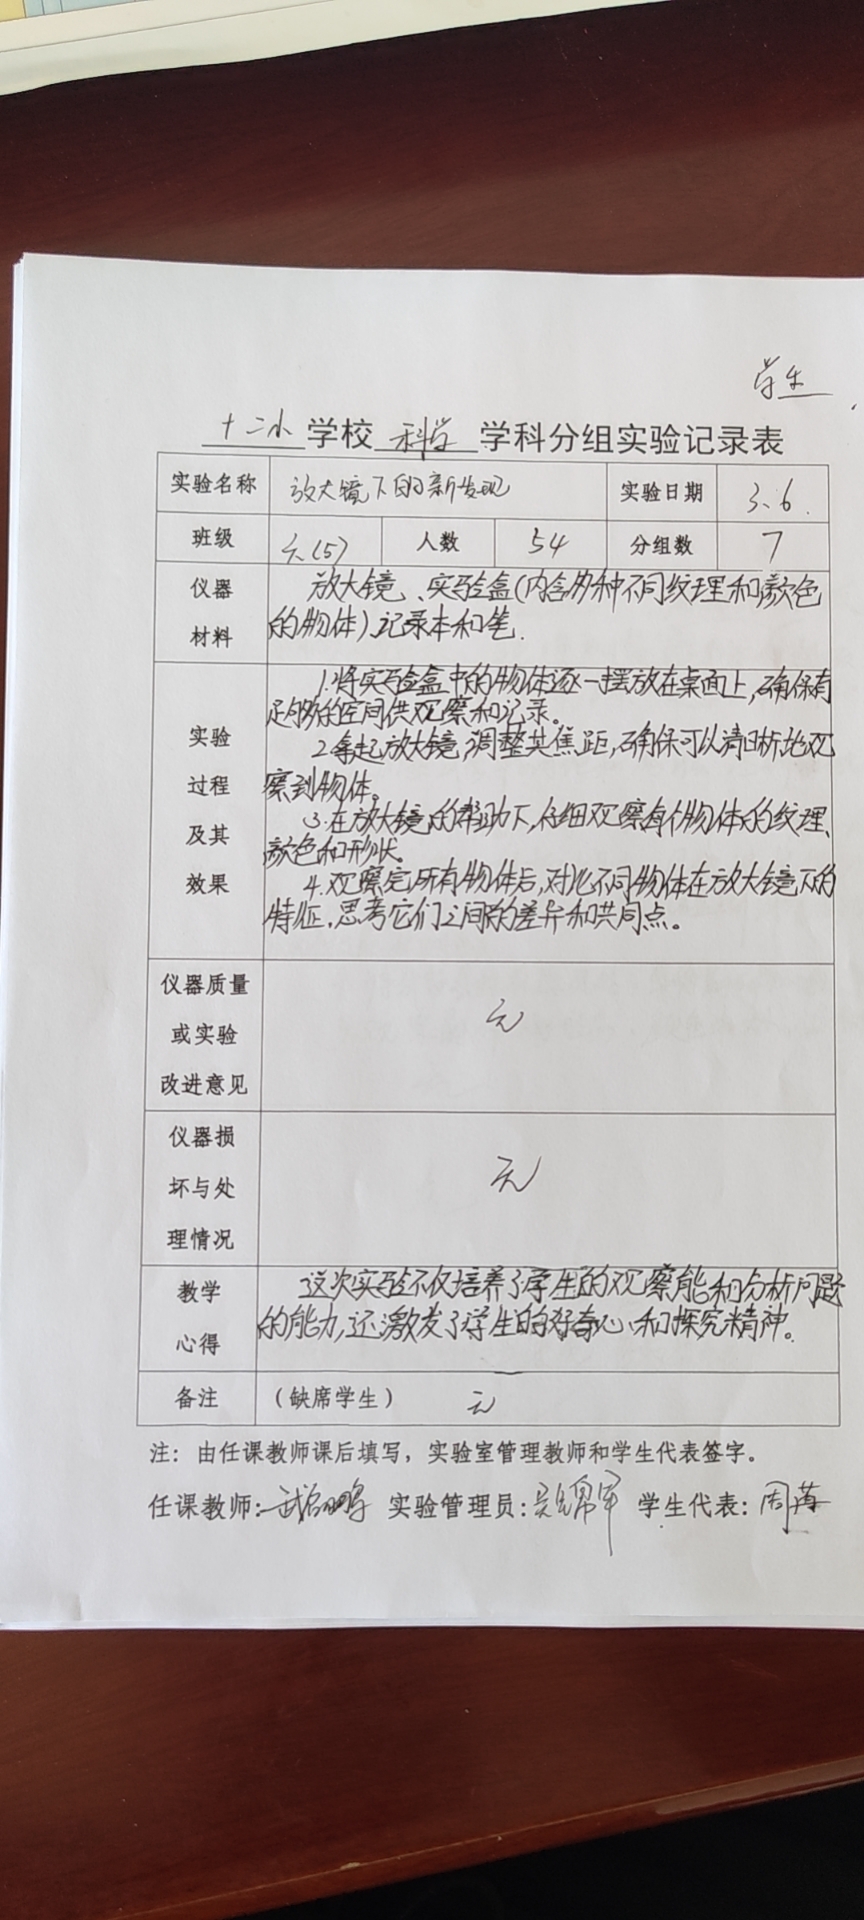 学生
十二小学校 科学 学科分组实验记录表
实验名称 放大镜下的新发现 实验日期 3.6.
班级 六(5) 人数 54 分组数 7
仪器材料
放大镜、实验盒(内含多种不同纹理和颜色
的物体)、记录本和笔.
实验过程及其效果
1.将实验盒中的物体逐一摆放在桌面上,确保有
足够的空间供观察和记录。
2.拿起放大镜,调整其焦距,确保可以清晰地观
察到物体。
3.在放大镜的帮助下,仔细观察每个物体的纹理、
颜色和形状.
4.观察完所有物体后,对比不同物体在放大镜下的
特征.思考它们之间的差异和共同点。
仪器质量或实验改进意见
无
仪器损坏与处理情况
无
教学心得
这次实验不仅培养了学生的观察能和分析问题
的能力,还激发了学生的好奇心和探究精神。
备注 (缺席学生) 无
注:由任课教师课后填写,实验室管理教师和学生代表签字。
任课教师: 实验管理员: 学生代表:周